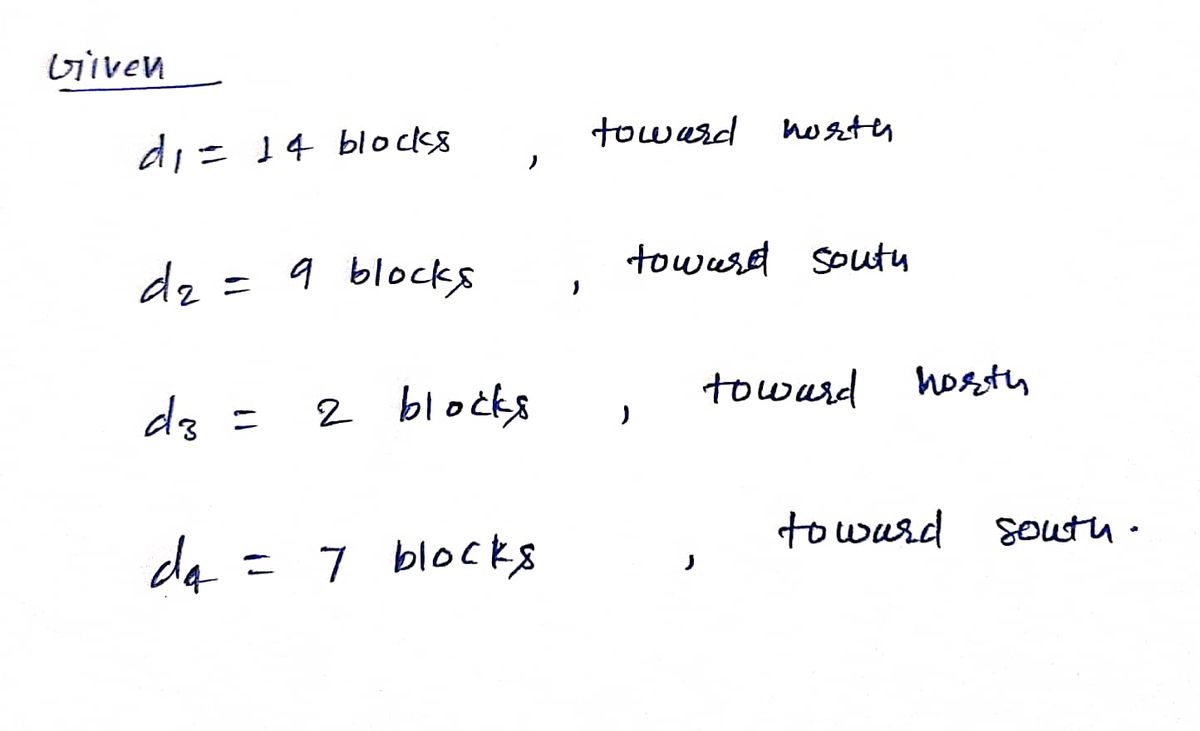 Given
d1 = 14 blocks , toward north
d2 = 9 blocks , toward south
d3 = 2 blocks , toward north
d4 = 7 blocks , toward south.